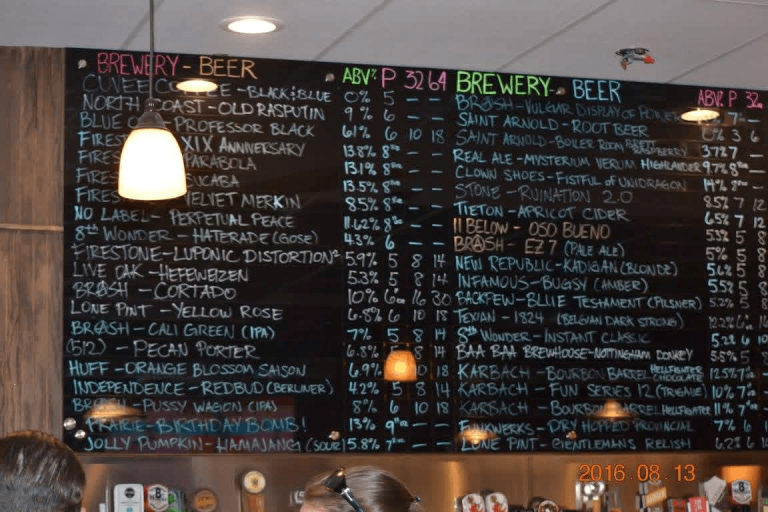 BREWERY - BEER ABV% P 32 64
CUVEE - BLACK & BLUE 0% 5 - -
NORTH COAST - OLD RASPUTIN 9% 6 - -
BLUE - PROFESSOR BLACK 6.1% 6 10 18
XIX ANNIVERSARY 13.8% 8 - -
PARABOLA 13.1% 8 - -
13.5% 8 - -
VELVET MERKIN 8.5% 8 - -
NO LABEL - PERPETUAL PEACE 11.62% 8 - -
8th WONDER - HATERADE (GOSE) 4.3% 6 - -
FIRESTONE - LUPONIC DISTORTION 5.9% 5 8 14
LIVE OAK - HEFEWEIZEN 5.3% 5 8 14
BRASH - CORTADO 10% 6 16 30
LONE PINT - YELLOW ROSE 6.8% 6 10 18
BRASH - CALI GREEN (IPA) 7% 5 8 14
(512) - PECAN PORTER 6.8% 8 14
HUFF - ORANGE BLOSSOM SAISON 6.9% 18
INDEPENDENCE - REDBUD (BERLINER) 4.2% 5 8 14
PUSSY WAGON (IPA) 8% 6 10 18
PRAIRIE - BIRTHDAY BOMB! 13% 9 - -
JOLLY PUMPKIN - HAMAJANG (SOUR) 5.8% 7 - -
BREWERY - BEER ABV% P 32
BRASH - VULGAR DISPLAY OF POWER 7 -
SAINT ARNOLD - ROOT BEER 0% 3 6
SAINT ARNOLD - BOILER ROOM RASPBERRY 3.7% 7 -
REAL ALE - MYSTERIUM VERUM HIGHLANDER 9.7% 8
CLOWN SHOES - FISTFUL OF UNIDRAGON 14% 8 -
STONE - RUINATION 2.0 8.5% 7 12
TIETON - APRICOT CIDER 6.5% 7 12
11 BELOW - OSO BUENO 5.3% 5 8
BRASH - EZ 7 (PALE ALE) 5% 5 8
NEW REPUBLIC - KADIGAN (BLONDE) 5.6% 5 8
INFAMOUS - BUGSY (AMBER) 5.5% 5 8
BACKPEW - BLUE TESTAMENT (PILSNER) 5.2% 5 8
TEXIAN - 1824 (BELGIAN DARK STRONG) 12.2% 6 16
8th WONDER - INSTANT CLASSIC 5.2% 6 10
BAA BAA BREWHOUSE - NOTTINGHAM DONKEY 5.5% 5 8
KARBACH - BOURBON BARREL HELLFIGHTER CHOCOLATE 12.5% 7
KARBACH - FUN SERIES 12 10% 7
KARBACH - BOURBON BARREL HELLFIGHTER 11% 7
FUNKWERKS - DRY HOPPED PROVINCIAL 7% 6
LONE PINT - GENTLEMANS RELISH 6.2% 6
2016.08.13